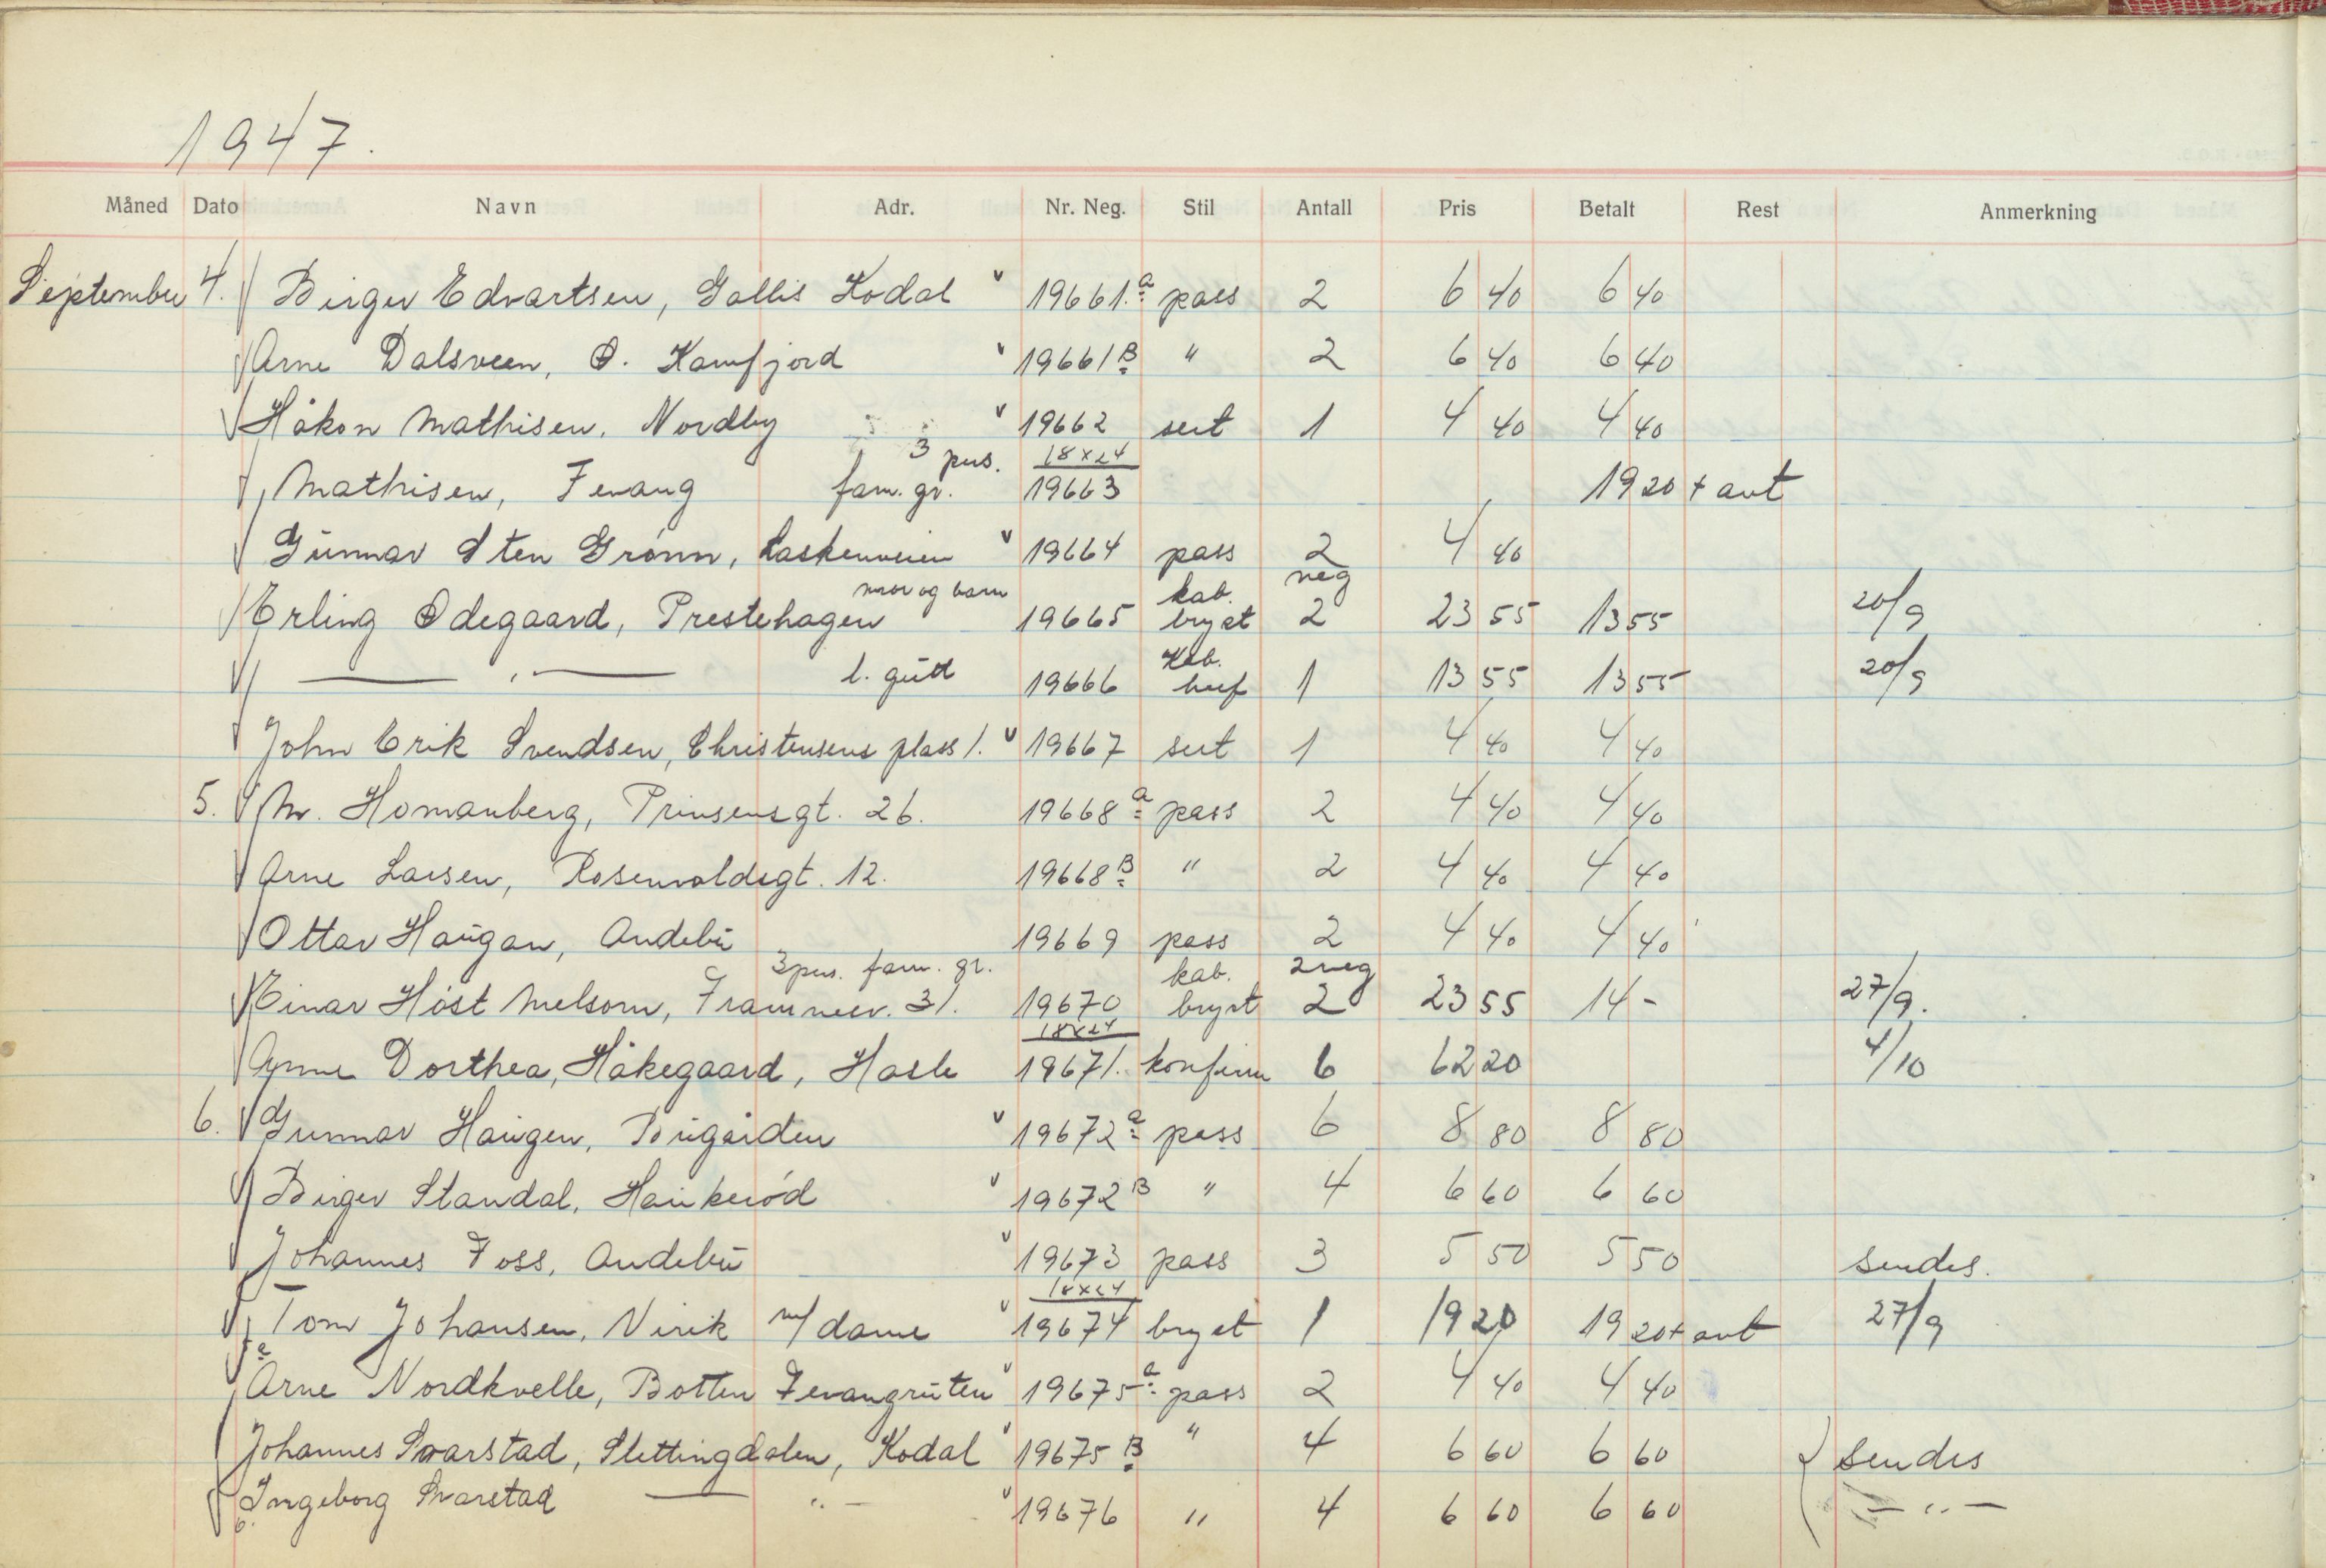 1947.
Måned Dato Navn Adr. Nr. Neg. Stil Antall Pris Betalt Rest Anmerkning
September 4. Birger Edvartsen, Gallis Kodal 19661.a pass 2 6 40 6 40
Arne Dalsveen, Ø. Kamfjord 19661 B " 2 6 40 6 40
Håkon Mathisen, Nordby 19662 sert 1 4 40 4 40
3 pers. 18x24
Mathisen, Fevang fam. gr. 19663 19 20 + avt
Gunnar Sten Grønn, Laskenveien 19664 pass 2 4 40
mor og barn kab. neg
Erling Ødegaard, Prestehagen 19665 bryst 2 23 55 13 55 20/9
kab.
— " — l. gutt 19666 1 13 55 13 55 20/9
John Erik Svendsen, Christensens plass 1. 19667 sert 1 4 40 4 40
5. M. Homanberg, Prinsensgt. 26. 19668 a pass 2 4 40 4 40
Arne Larsen, Rosenvoldsgt. 12. 19668 B " 2 4 40 4 40
Ottar Haugan, Andebu 19669 pass 2 4 40 4 40
3 pers. fam. gr. kab. 2 neg
Einar Høst Melsom, Framnesv. 31. 19670 bryst 2 23 55 14 - 27/9.
18x24
Anne Dorthea, Håkegaard, Hasle 19671. konfirm 6 62 20 4/10
6. Gunnar Haugen, Bugården 19672 a pass 6 8 80 8 80
Birger Standal, Haukerød 19672 B " 4 6 60 6 60
Johannes Foss, Andebu 19673 pass 3 5 50 5 50 sendes.
18x24
Tom Johansen, Virik m/dame 19674 bryst 1 19 20 19 20 + avt 27/9
a
Arne Nordkvelle, Botten Fevangruten 19675 a pass 2 4 40 4 40
Johannes Svarstad, Slettingdalen, Kodal 19675 B " 4 6 60 6 60 sendes
Ingeborg Svarstad — " — 19676 " 4 6 60 6 60 — " —